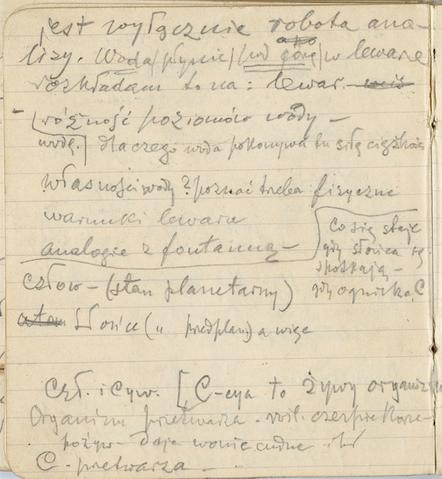 jest wyłącznie robota ana-
lizy. Woda/płynie/pod górę/w lewarze
rozkładam to na: lewar.
różność poziomów wody –
wodę. dlaczego woda pokonywa tu siłę ciężkości
własności wody? poznać trzeba fizyczne
warunki lewara
analogie z fontanną –
Co się staje
gdy słońca się
spotkają –
gdy ogniska C
człow – (stan planetarny)
Słońce („ predplan) a więc
Czł. i Cyw. [C-cya to żywy organizm
Organizm przetwarza
pożyw- daje wonie cudne itd
C- przetwarza –